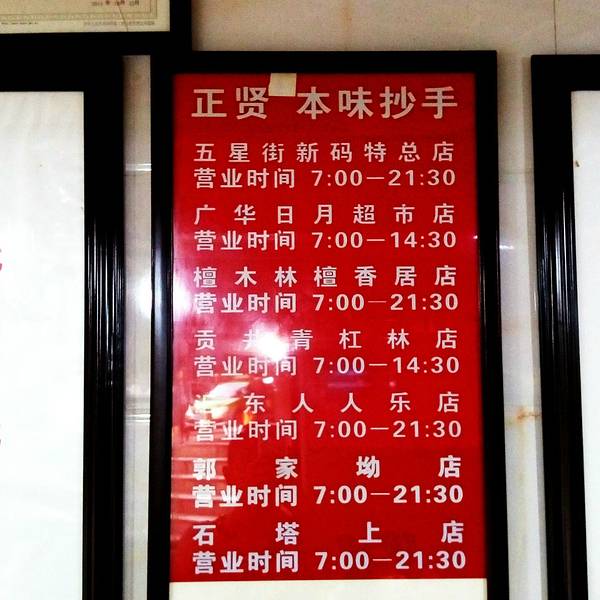 正贤 本味抄手
五星街新码特总店
营业时间 7:00—21:30
广华日月超市店
营业时间 7:00—14:30
檀木林檀香居店
营业时间 7:00—21:30
贡井青杠林店
营业时间 7:00—14:30
汇东人人乐店
营业时间 7:00—21:30
郭家坳店
营业时间 7:00—21:30
石塔上店
营业时间 7:00—21:30